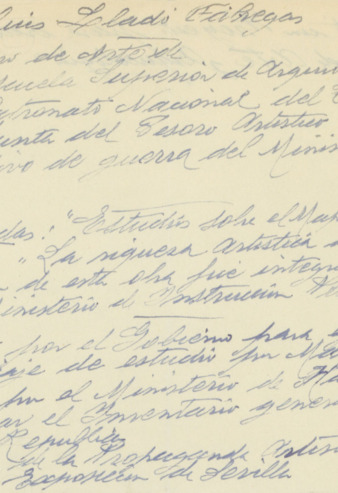 Luis Lladó Fábregas
ro de Arte de
cuela Superior de Arqui
Patronato Nacional del T
unta del Tesoro Artístico
ivo de guerra del Minis
das: "Estudios sobre el Mu
"La riqueza artística
de esta obra fué integr
inisterio de Instrucción
por el Gobierno para
aje de estudio por Ma
por el Ministerio de Ha
ar el Inventario gener
República
de la Propaganda Artís
Exposición de Sevilla